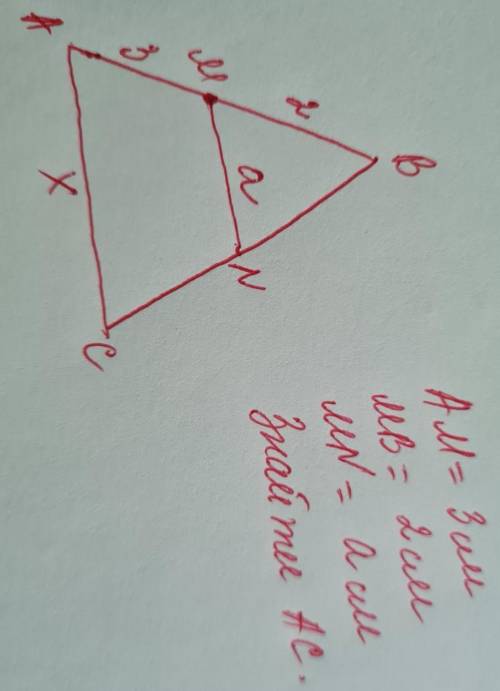 A
3
M
2
B
a
x
N
C
AM = 3 см
MB = 2 см
MN = a см
Знайти AC.